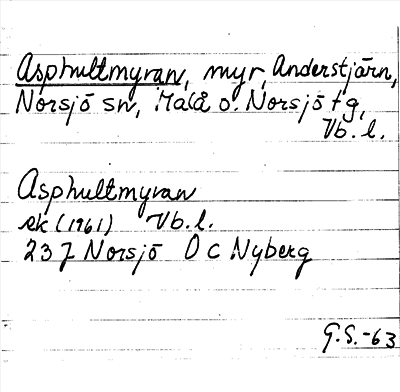 Asphultmyran, myr, Anderstjärn,
Norsjö sn, Malå o. Norsjö tg,
Vb. l.
Asphultmyran
ek (1961) Vb. l.
23 J Norsjö O C Nyberg
G.S. -63